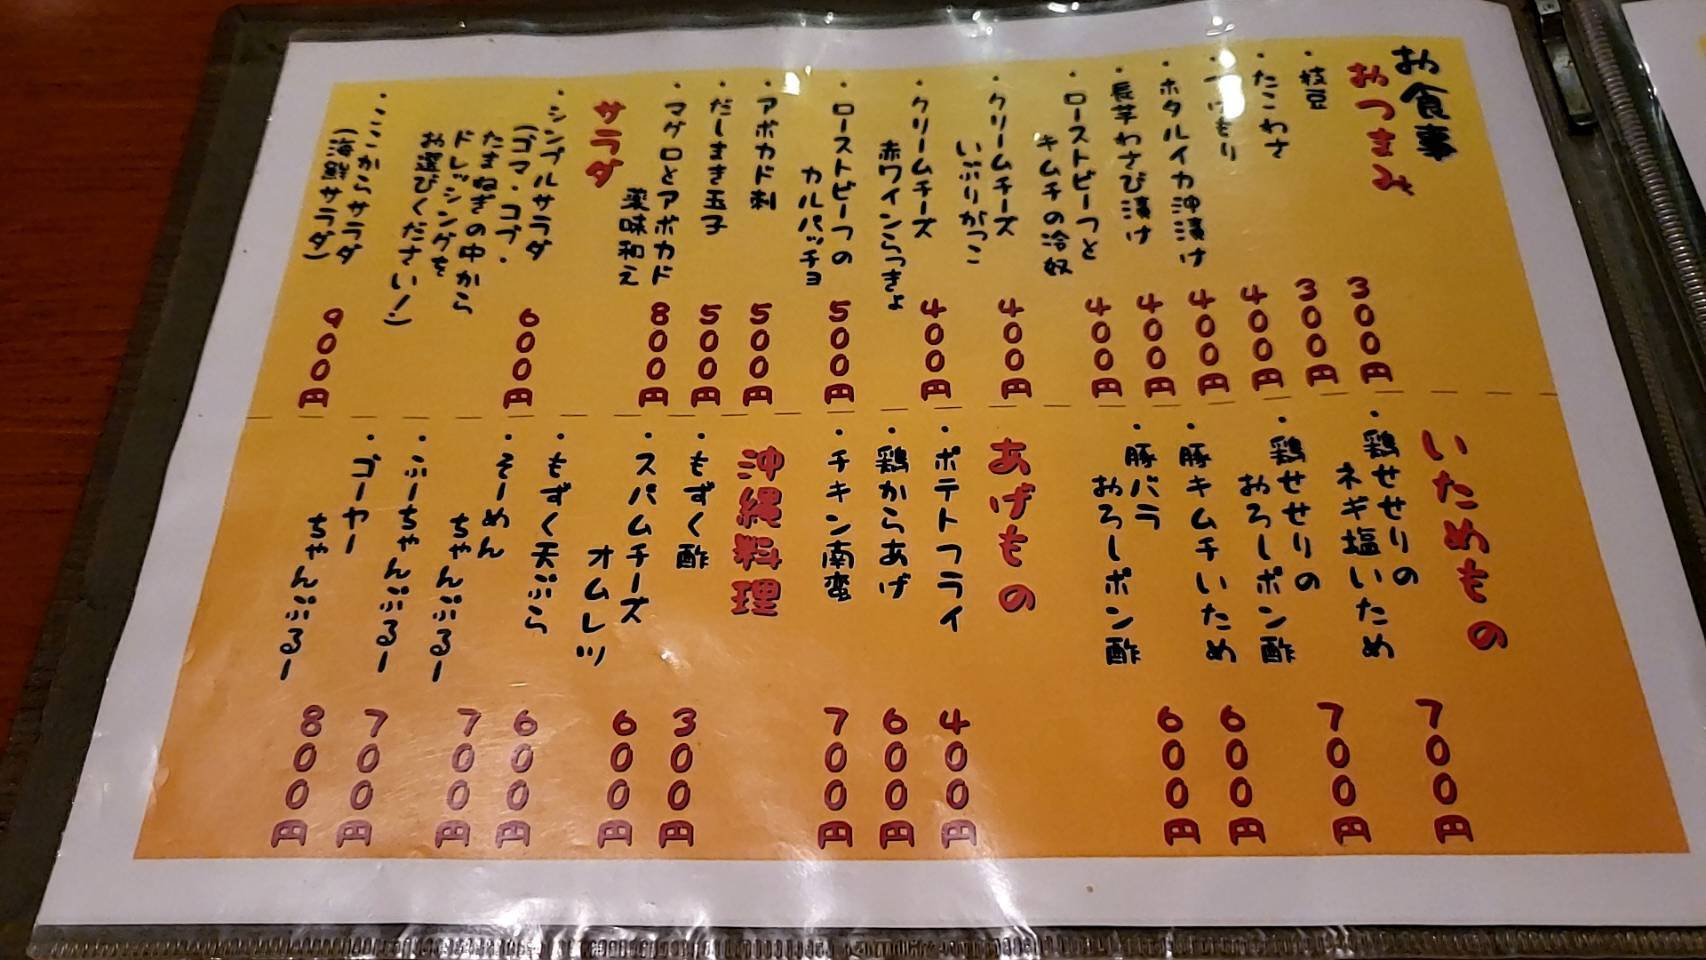 お食事
おつまみ
・枝豆 300円
・たこわさ 300円
400円
・ホタルイカ沖漬け 400円
・長芋わさび漬け 400円
・ローストビーフと
キムチの冷奴 400円
・クリームチーズ
いぶりがっこ 400円
・クリームチーズ
赤ワインらっきょ 400円
・ローストビーフの
カルパッチョ 500円
・アボカド刺 500円
・だしまき玉子 500円
・マグロとアボカド
薬味和え 800円
サラダ
・シンプルサラダ 600円
(ゴマ・コブ・
たまねぎの中から
ドレッシングを
お選びください!)
・ここからサラダ
(海鮮サラダ) 900円
いためもの
・鶏せせりの
ネギ塩いため 700円
・鶏せせりの
おろしポン酢 700円
・豚キムチいため 600円
・豚バラ
おろしポン酢 600円
あげもの
・ポテトフライ 400円
・鶏からあげ 600円
・チキン南蛮 700円
沖縄料理
・もずく酢 300円
・スパムチーズ
オムレツ 600円
・もずく天ぷら 600円
・そーめん
ちゃんぷるー 700円
・ふーちゃんぷるー 700円
・ゴーヤー
ちゃんぷるー 800円